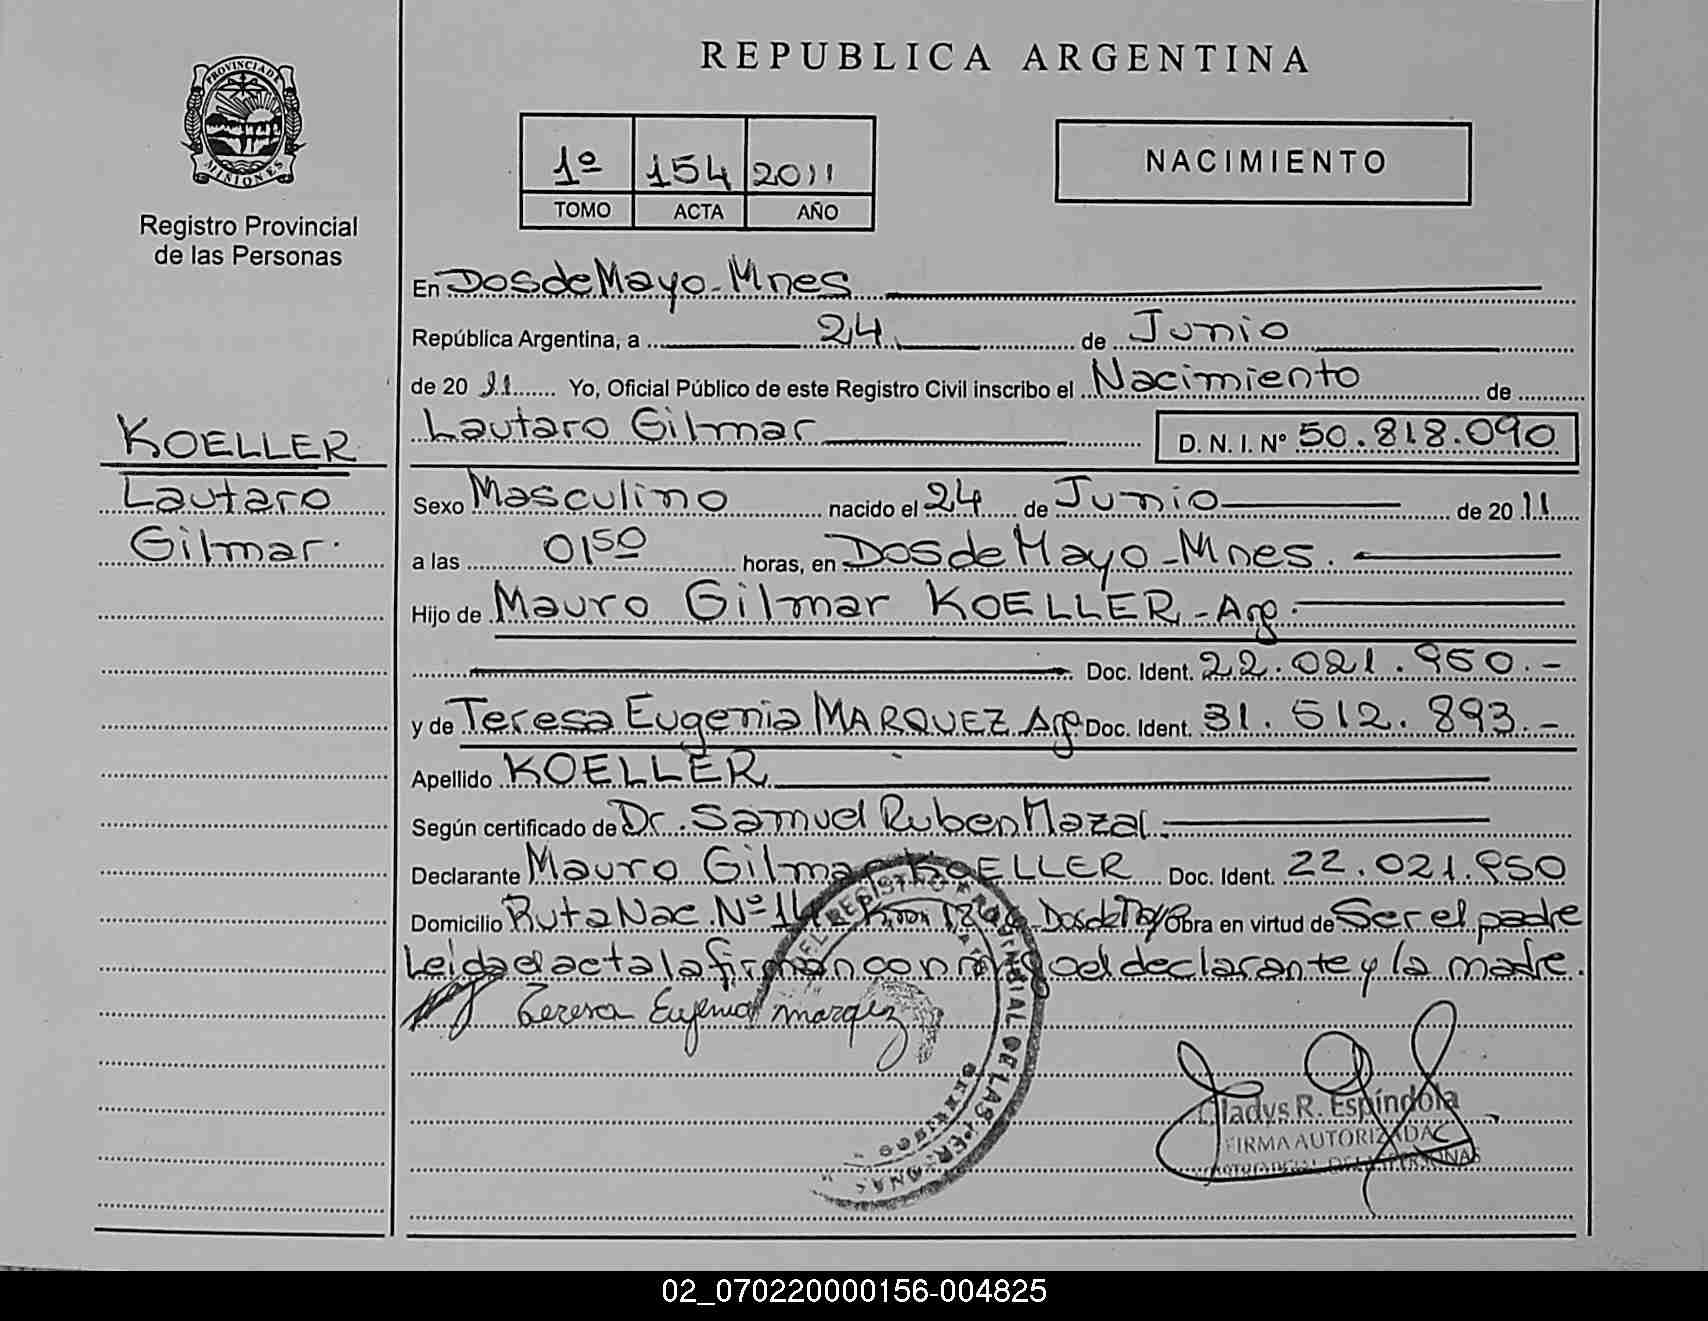 PROVINCIA DE
MISIONES
Registro Provincial
de las Personas
KOELLER
Lautaro
Gilmar.
REPUBLICA ARGENTINA
1º 154 2011
TOMO ACTA AÑO
NACIMIENTO
En Dos de Mayo - Mnes
República Argentina, a 24 de Junio
de 20 11 Yo, Oficial Público de este Registro Civil inscribo el Nacimiento de
Lautaro Gilmar D. N. I. Nº 50.818.090
Sexo Masculino nacido el 24 de Junio de 20 11
a las 01 50 horas, en Dos de Mayo - Mnes.
Hijo de Mauro Gilmar KOELLER - Arg.
Doc. Ident. 22.021.950.-
y de Teresa Eugenia MARQUEZ Arg Doc. Ident. 31.512.893.-
Apellido KOELLER
Según certificado de Dr. Samuel Ruben Mazal.
Declarante Mauro Gilmar KOELLER Doc. Ident. 22.021.950
Domicilio Ruta Nac. Nº 14 Km Dos de Mayo Obra en virtud de Ser el padre
Leida el acta la firman conmigo el declarante y la madre.
Teresa Eugenia Marquez
DEL REGISTRO PROVINCIAL DE LAS PERSONAS
Gladys R. Espíndola
FIRMA AUTORIZADA
02_070220000156-004825